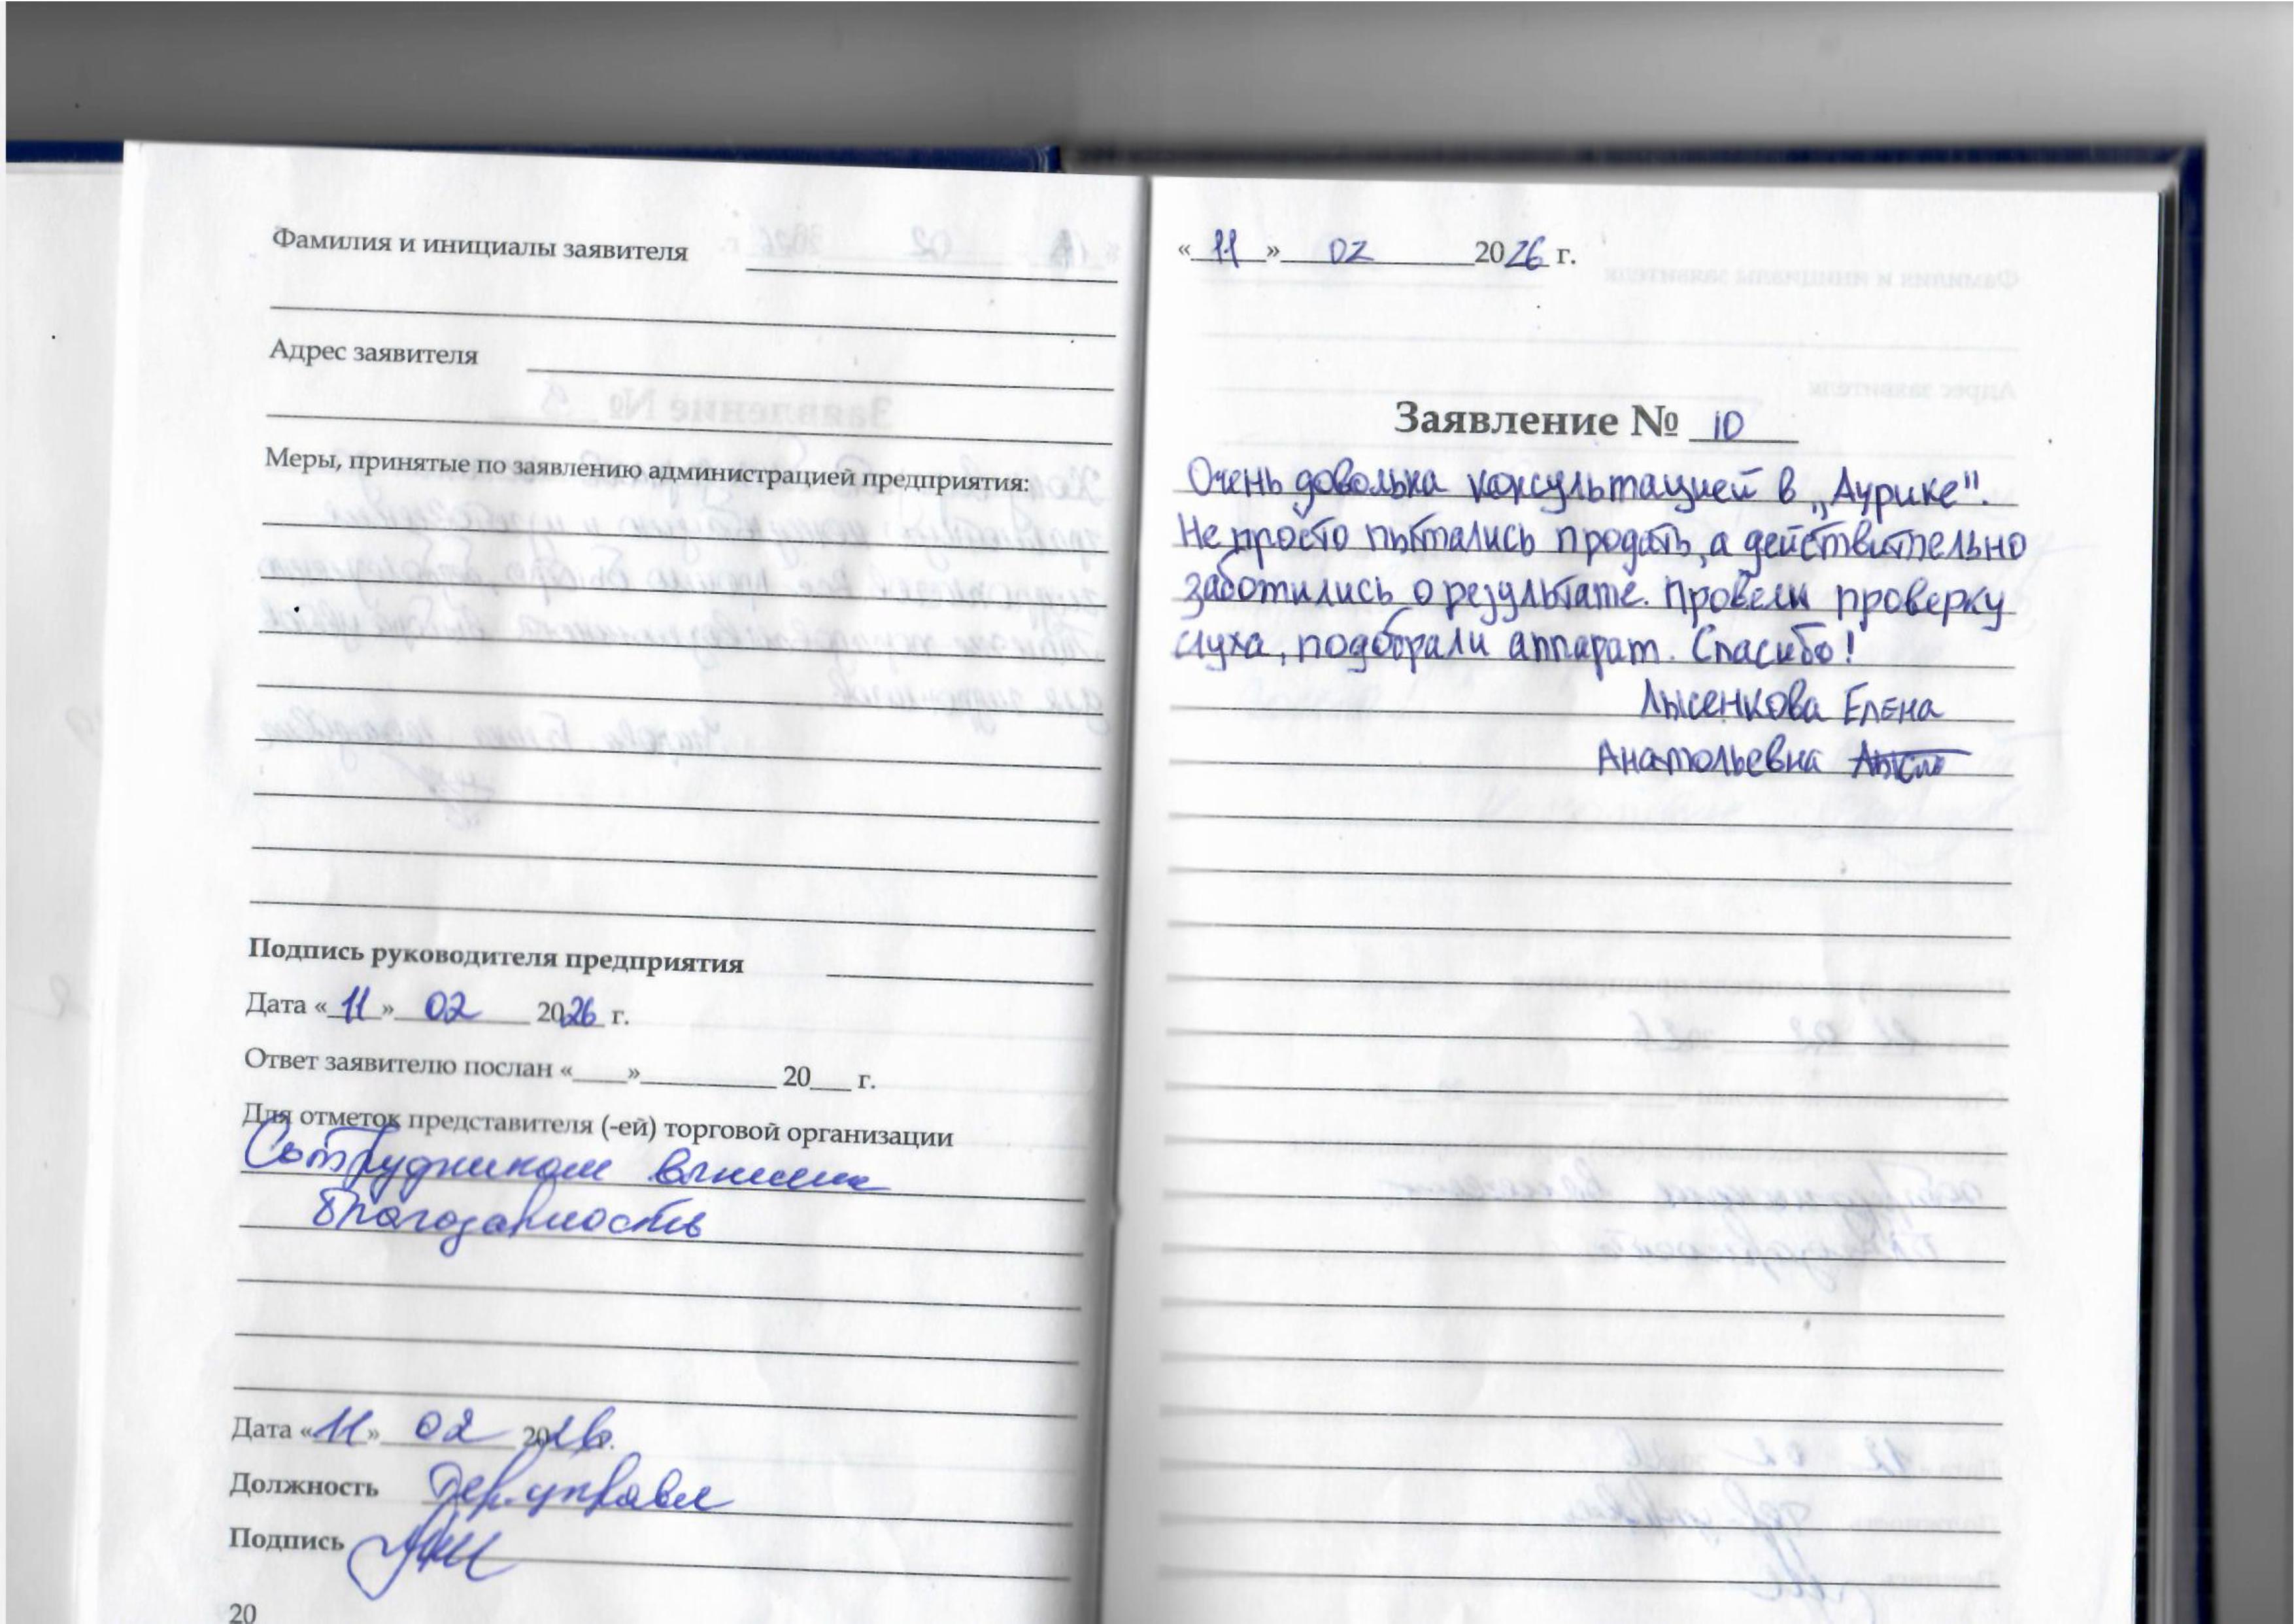 Фамилия и инициалы заявителя
Адрес заявителя
Меры, принятые по заявлению администрацией предприятия:
Подпись руководителя предприятия
Дата «11» 02 2026 г.
Ответ заявителю послан «____»__________ 20___ г.
Для отметок представителя (-ей) торговой организации
Сотрудникам вынесена
благодарность
Дата «11» 02 2026 г.
Должность Тер.управл
Подпись
20
«11» 02 2026 г.
Заявление № 10
Очень довольна консультацией в „Аурике".
Не просто пытались продать, а действительно
заботились о результате. Провели проверку
слуха, подобрали аппарат. Спасибо!
Лысенкова Елена
Анатольевна